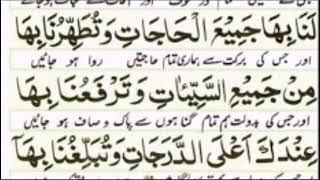 لَنَا بِهَا جَمِيْعَ الْحَاجَاتِ وَتُطَهِّرُنَا بِهَا
اور جس کی برکت سے ہماری تمام حاجتیں روا ہو جائیں
مِنْ جَمِيْعِ السَّيِّاٰتِ وَتَرْفَعُنَا بِهَا
اور جس کی بدولت ہم تمام گناہوں سے پاک و صاف ہو جائیں
عِنْدَكَ اَعْلَى الدَّرَجَاتِ وَتُبَلِّغُنَا بِهَآ